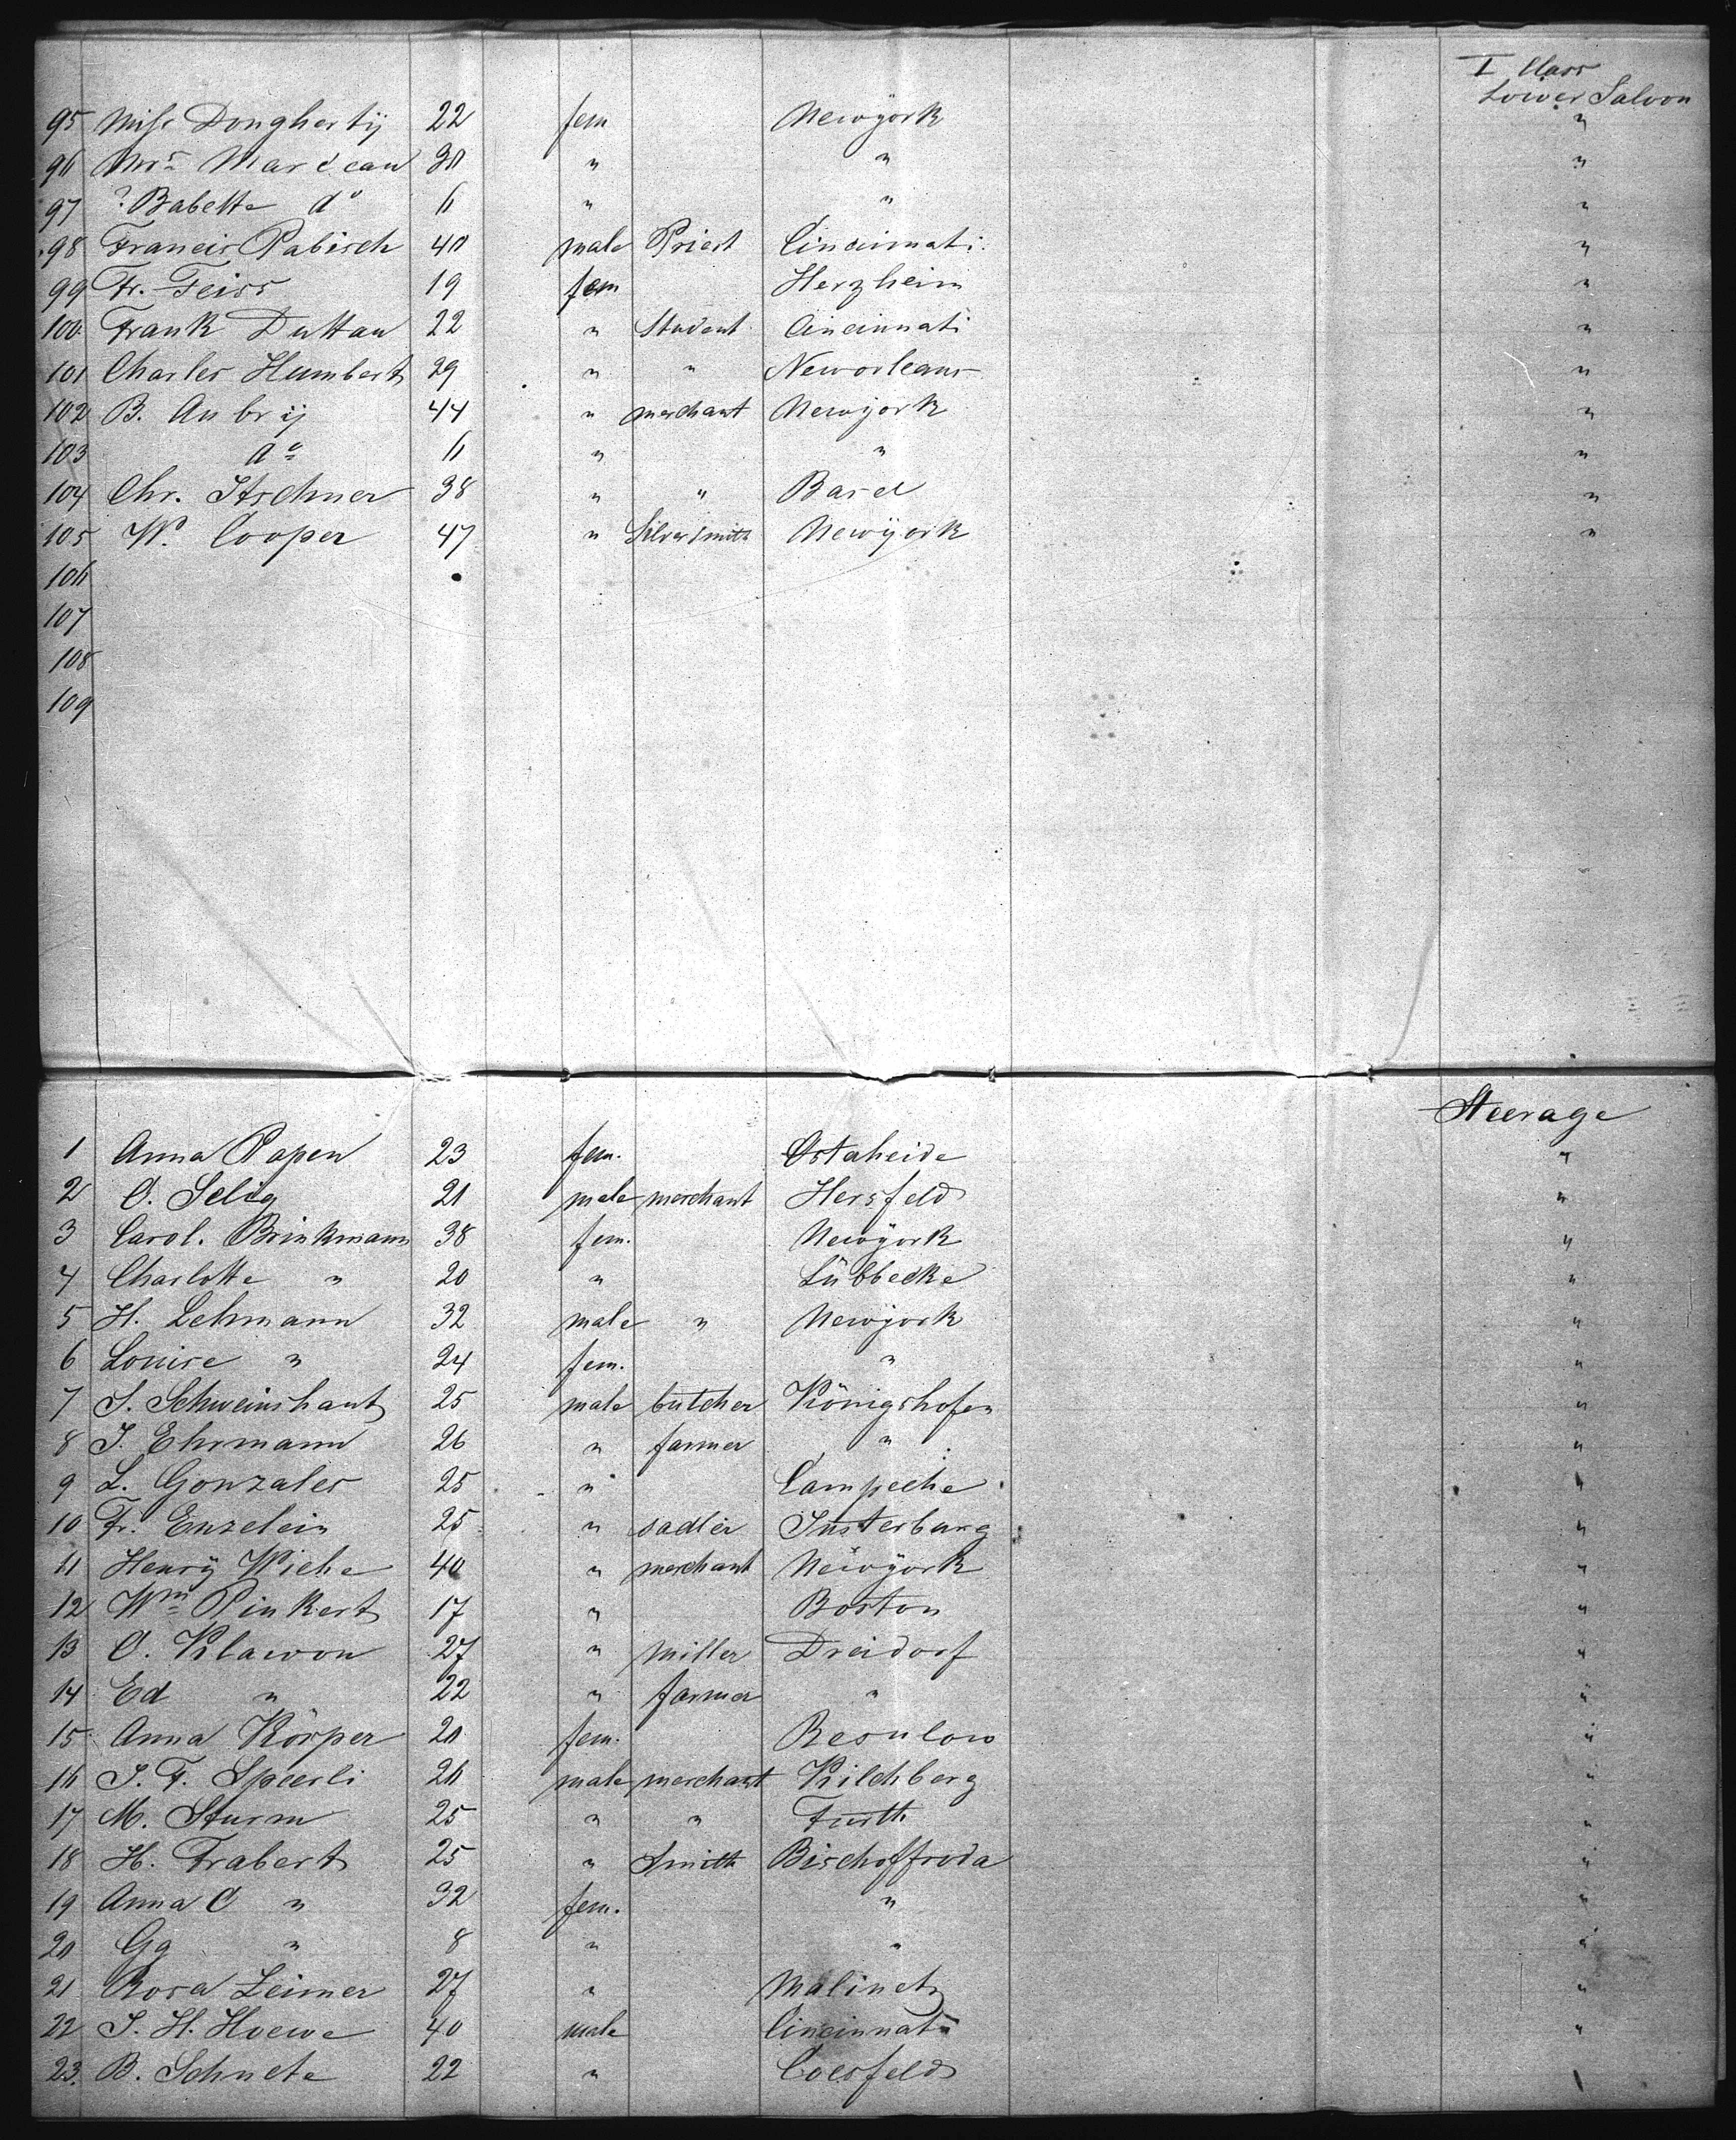 I Class
Lower Saloon
95 Miss Doughertÿ 22 fem Newÿork "
96 Mrs Mardeau 30 " " "
97 ? Babette do 6 " " "
98 Francis Pabisch 40 male Priest Cincinnati "
99 Fr. Feiss 19 fem Herzheim "
100 Frank Duttan 22 " Student Cincinnati "
101 Charles Humbert 29 " " Neworleans "
102 B. Aubrÿ 44 " merchant Newÿork "
103 do 6 " " "
104 Chr. Itschner 38 " " Basel "
105 W. Cooper 47 " Silversmith Newÿork "
106
107
108
109
Steerage
1 Anna Papen 23 fem. Ostaheide "
2 C. Selig 21 male merchant Hersfeld "
3 Carol. Brinkmann 38 fem. Newÿork "
4 Charlotte " 20 " Lübbecke "
5 H. Lehmann 32 male " Newÿork "
6 Louise " 24 fem. " "
7 S. Schweinshaut 25 male butcher Königshofen "
8 J. Ehrmann 26 " farmer " "
9 L. Gonzales 25 " Campeche "
10 Fr. Enzelein 25 " sadler Insterburg "
11 Henrÿ Wiehe 40 " merchant Newÿork "
12 Wm Pinkert 17 " Boston "
13 C. Klawon 27 " Miller Dreidorf "
14 Ed " 22 " farmer " "
15 Anna Körper 20 fem. Resulow "
16 J. F. Speerli 26 male merchant Kilchberg "
17 M. Sturm 25 " " Furth "
18 H. Trabert 25 " Smith Bischoffroda "
19 Anna C " 32 fem. " "
20 Gg " 8 " " "
21 Rosa Leimer 27 " Malinetz "
22 J. H. Hoewe 40 male Cincinnati "
23. B. Schuete 22 " Coesfeld "